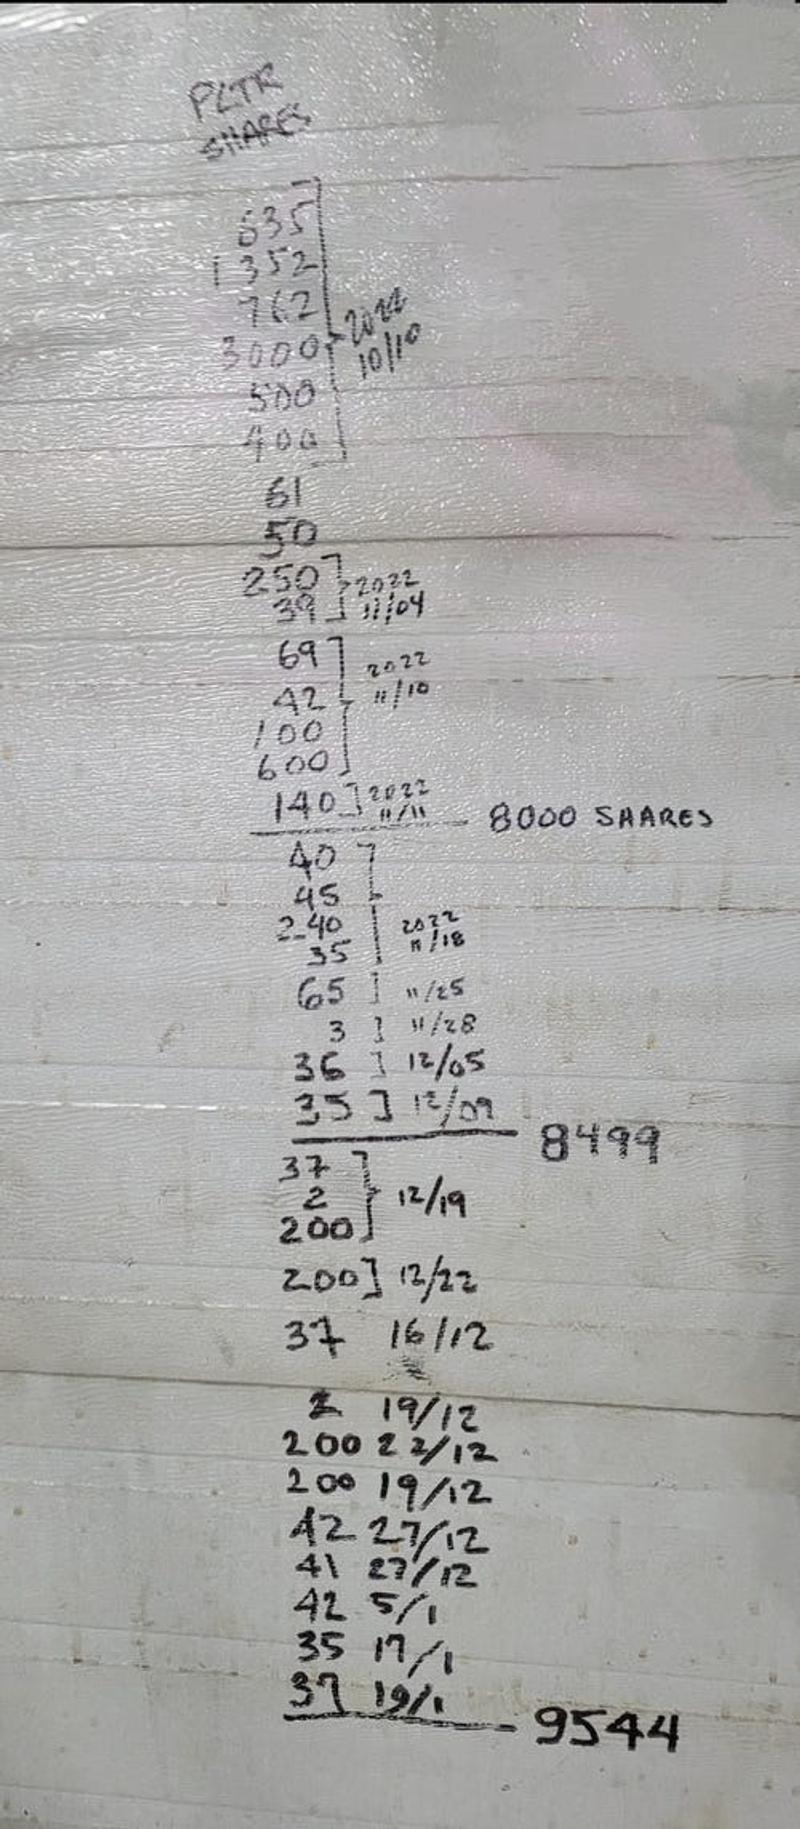 PLTR
SHARES
635
1352
762
3000 2022
10/10
500
400
61
50
250 2022
39 11/04
69 2022
42 11/10
100
600
140 2022
11/11 8000 SHARES
40
45
240 2022
35 11/18
65 11/25
3 11/28
36 12/05
35 12/09
8499
37
2 12/19
200
200 12/22
37 16/12
2 19/12
200 22/12
200 19/12
42 27/12
41 27/12
42 5/1
35 17/1
37 19/1
9544